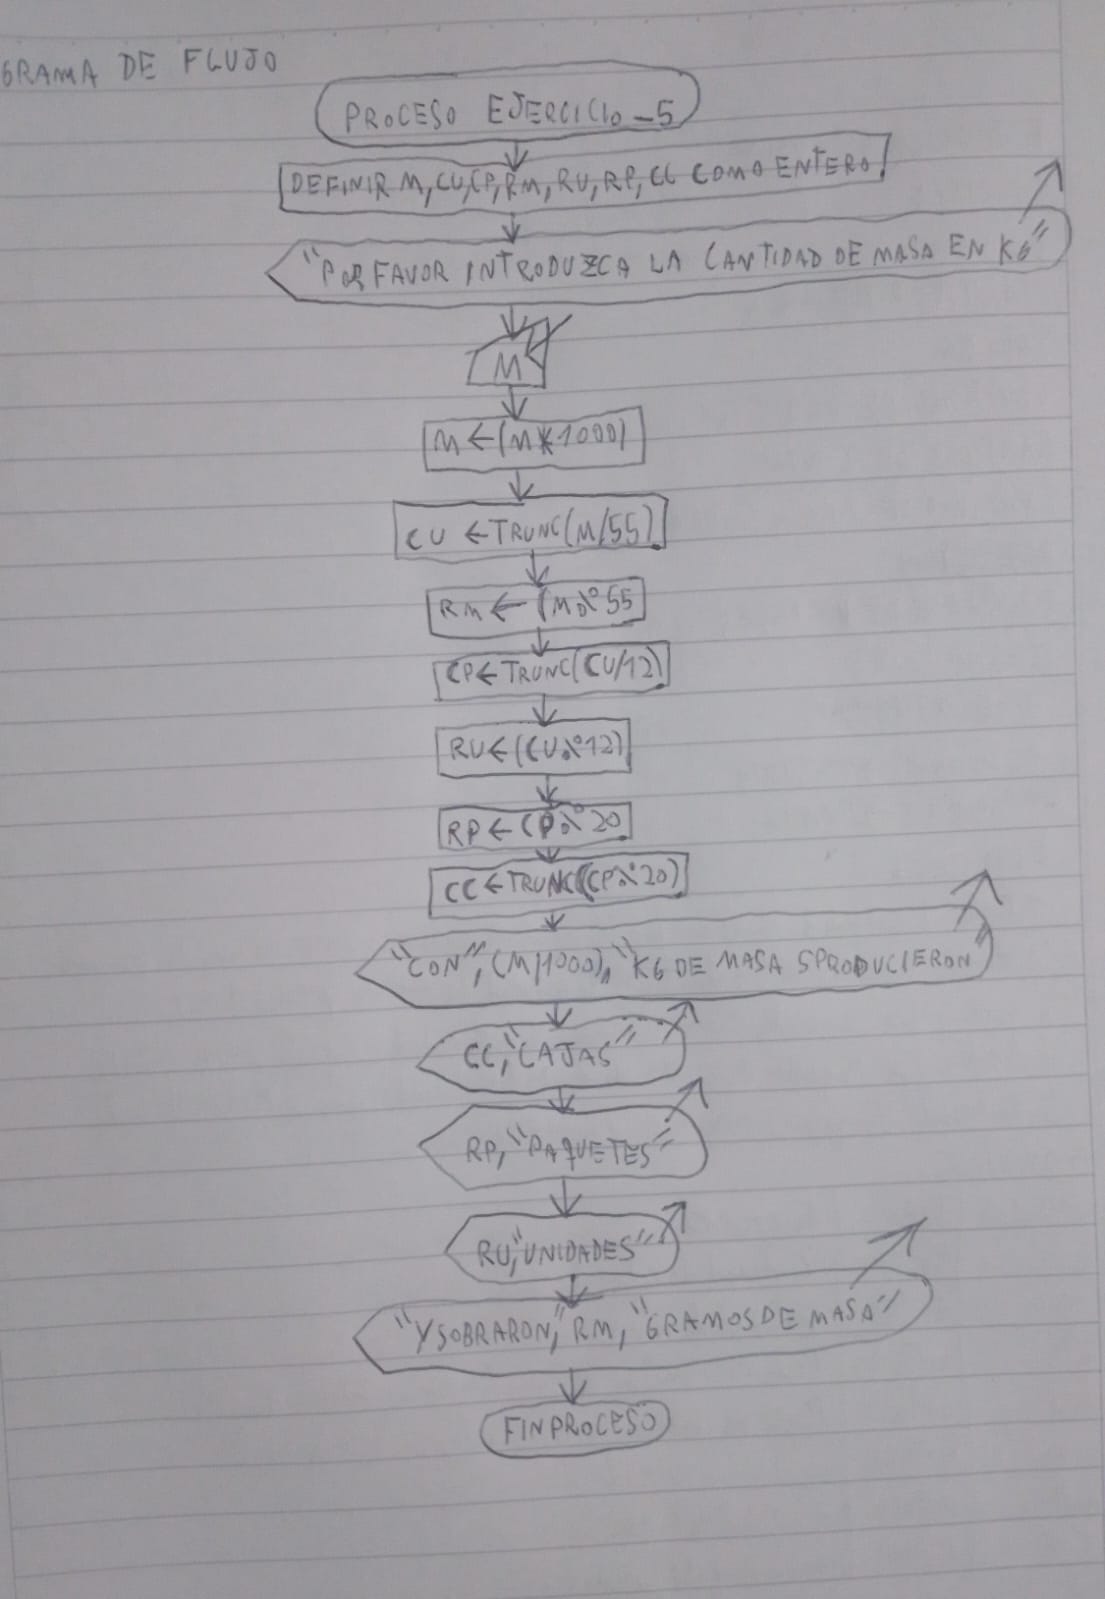 GRAMA DE FLUJO
PROCESO EJERCICIO_5
DEFINIR M, CU, CP, RM, RU, RP, CC COMO ENTERO
"POR FAVOR INTRODUZCA LA CANTIDAD DE MASA EN KG"
M
M ← (M*1000)
CU ← TRUNC(M/55)
RM ← (M % 55
CP ← TRUNC(CU/12)
RU ← (CU % 12)
RP ← CP % 20
CC ← TRUNC((CP % 20)
"CON", (M/1000), "KG DE MASA SPRODUCIERON"
CC, "CAJAS"
RP, "PAQUETES"
RU, "UNIDADES"
"Y SOBRARON", RM, "GRAMOS DE MASA"
FINPROCESO